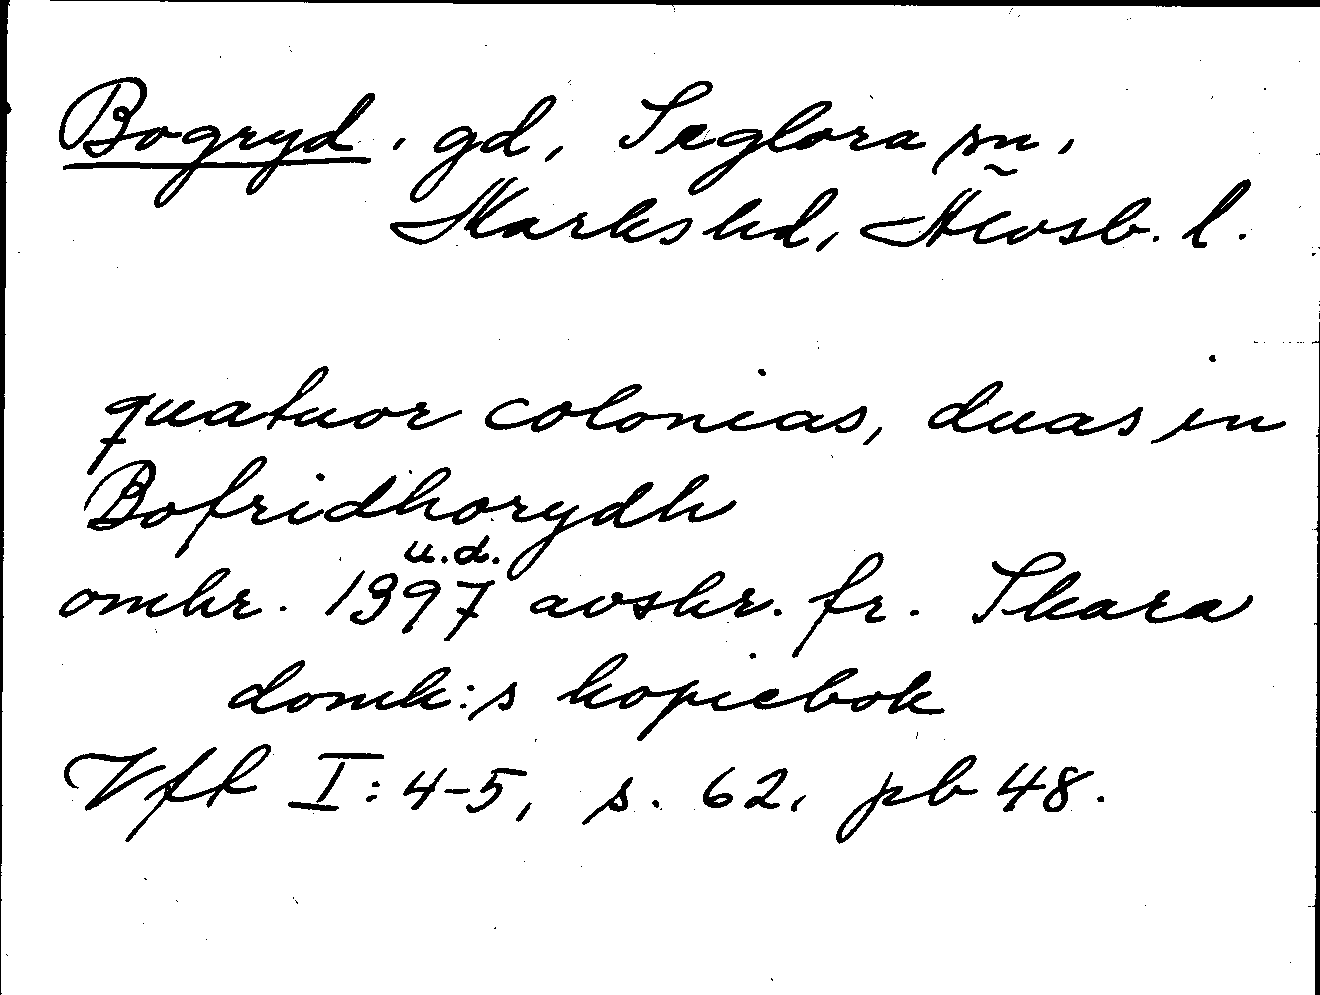 Bogryd. gd, Seglora sn,
Marks hd, Älvsb. l.
quatuor colonias, duas in
Bofridhorydh
u.d.
omkr. 1397 avskr. fr. Skara
domk:s kopiebok
Vft I: 4-5, s. 62, pb 48.